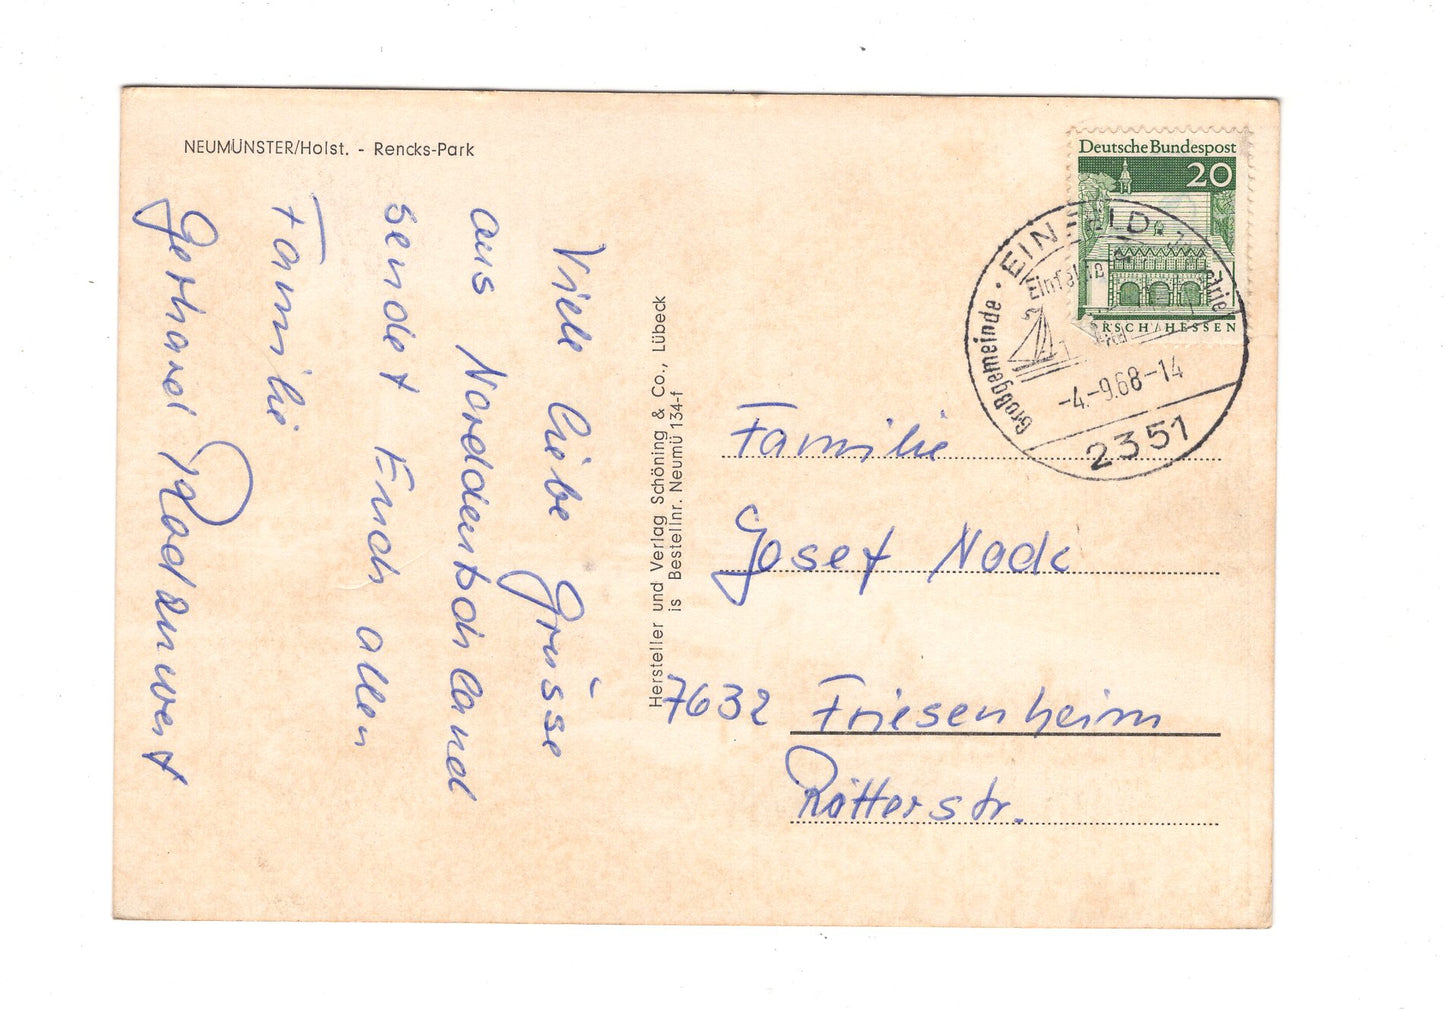 NEUMÜNSTER/Holst. - Rencks-Park
Viele liebe Grüsse
aus Norddeutschland
sendet Euch allen
Familie
Gerhard
Hersteller und Verlag Schöning & Co., Lübeck
is Bestellnr. Neumü 134-f
Deutsche Bundespost
20
RSCH/HESSEN
EINFELD
Großgemeinde
-4.-9.68-14
2351
Familie
Josef Nock
7632 Friesenheim
Rötterstr.